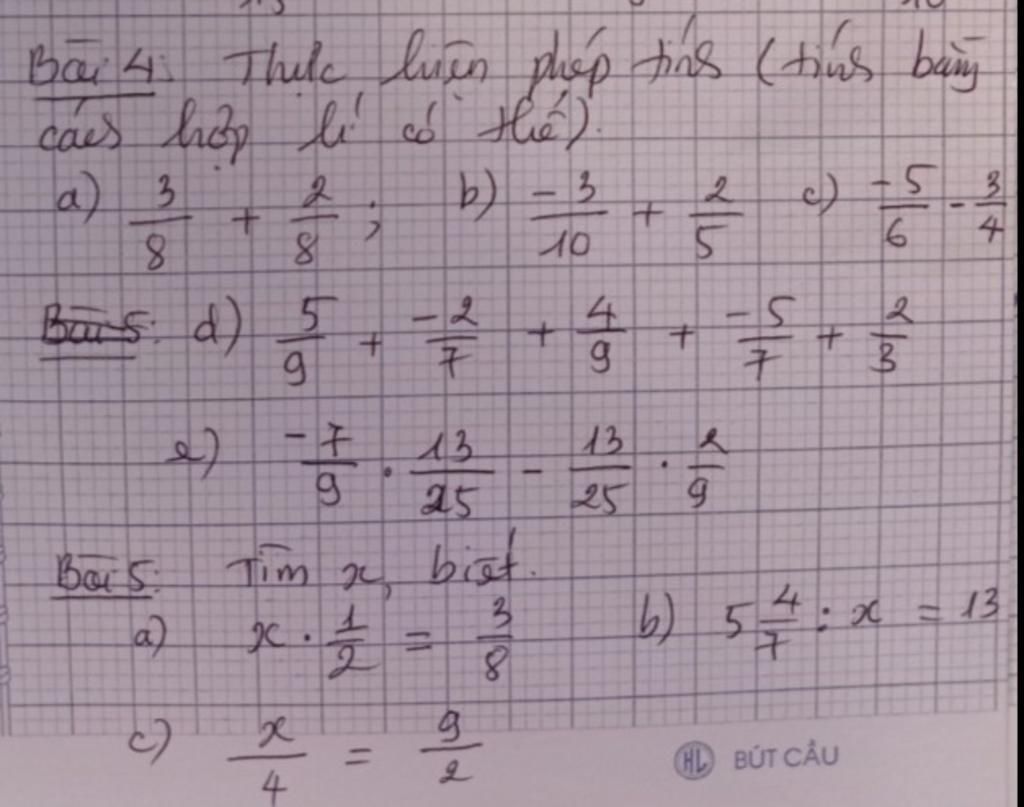 Bài 4: Thực hiện phép tính (tính bằng
cách hợp lí có thể).
a) 3/8 + 2/8 ; b) -3/10 + 2/5 c) -5/6 - 3/4
Bài 5: d) 5/9 + -2/7 + 4/9 + -5/7 + 2/3
e) -7/9 . 13/25 - 13/25 . 2/9
Bài 5: Tìm x, biết.
a) x . 1/2 = 3/8 b) 5 4/7 : x = 13
c) x/4 = 9/2
HL BÚT CẦU